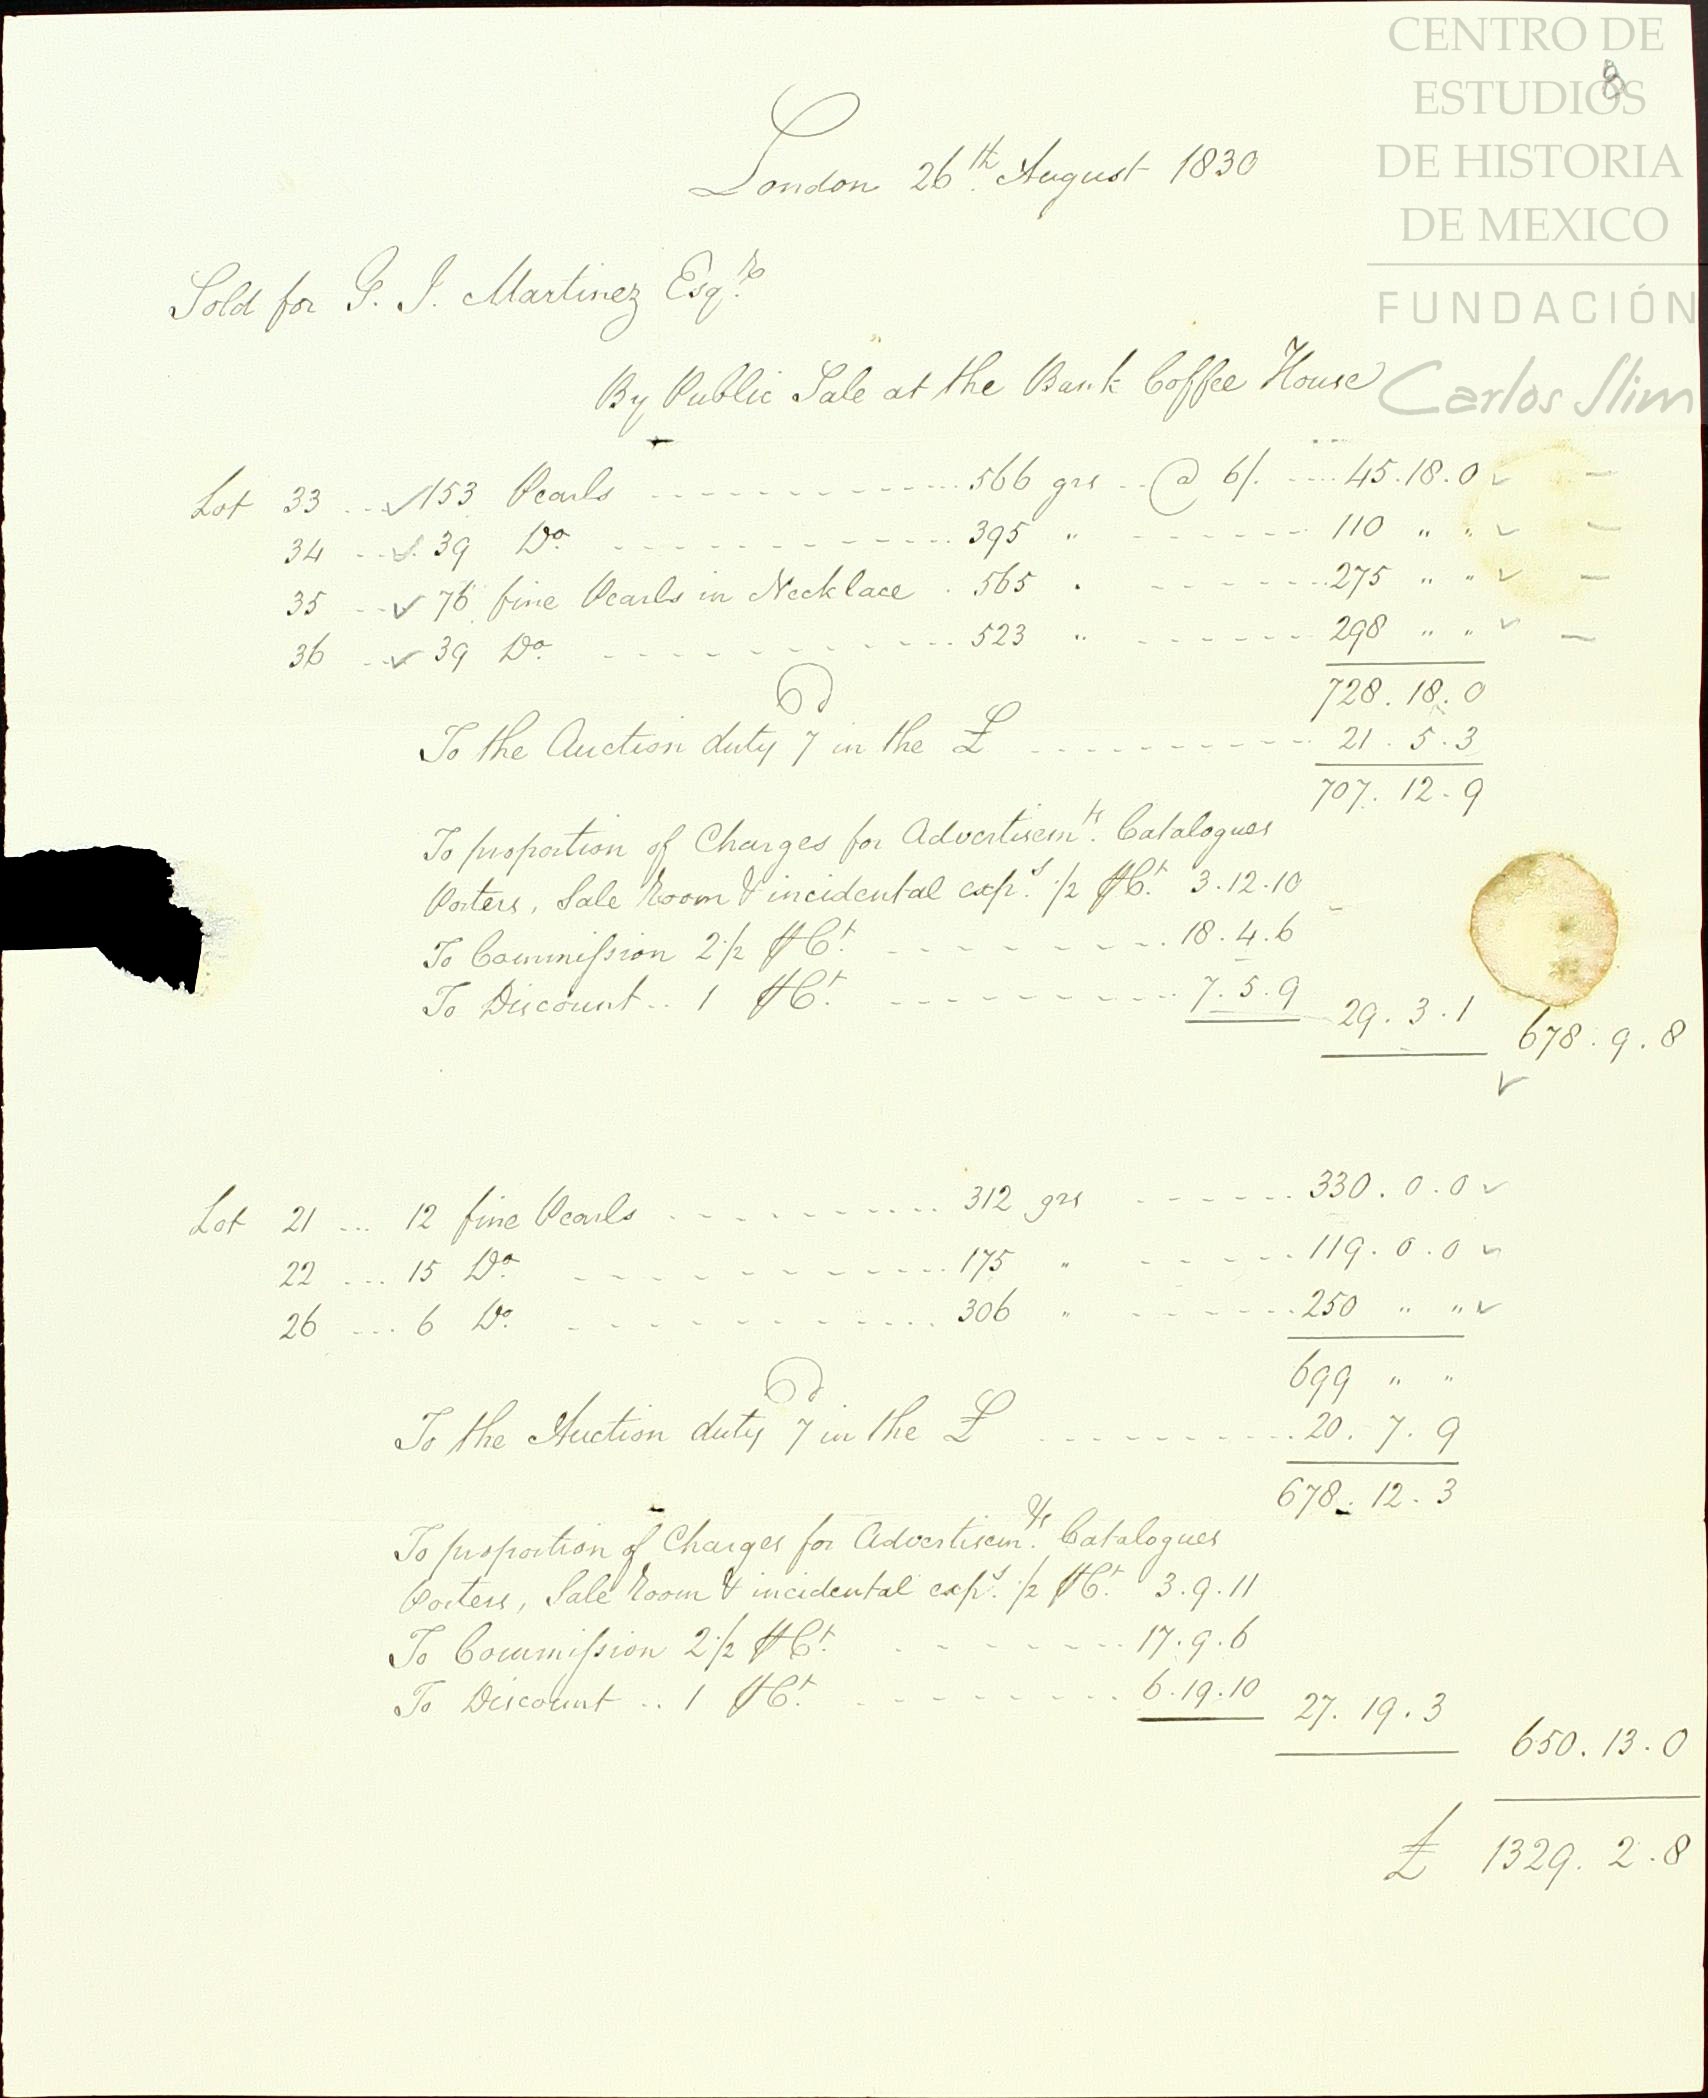 CENTRO DE
ESTUDIOS
DE HISTORIA
DE MEXICO
FUNDACIÓN
Carlos Slim
8
London 26th August 1830
Sold for G. I. Martinez Esqre
By Public Sale at the Bank Coffee House
Lot 33 ... ✓153 Pearls ............ 566 grs .. @ 6/. .... 45.18.0 ✓ —
34 ... ✓ 39 Do. ............ 395 " ...... 110 " " ✓ —
35 ... ✓ 76 fine Pearls in Necklace . 565 . ...... 275 " " ✓ —
36 ... ✓ 39 Do. ............ 523 " ...... 298 " " ✓ —
728.18.0
To the Auction duty 7d in the £ ............ 21.5.3
707.12.9
To proportion of Charges for Advertisemts. Catalogues
Porters, Sale Room & incidental exps. ½ ⅌Ct. 3.12.10
To Commiſsion 2½ ⅌Ct. ........ 18.4.6
To Discount .. 1 ⅌Ct. .......... 7.5.9 29.3.1 678.9.8
✓
Lot 21 ... 12 fine Pearls .......... 312 grs ...... 330.0.0 ✓
22 ... 15 Do. ............ 175 " ...... 119.0.0 ✓
26 ... 6 Do. ............ 306 " ...... 250 " " ✓
699 " "
To the Auction duty 7d in the £ .......... 20.7.9
678.12.3
To proportion of Charges for Advertisemts. Catalogues
Porters, Sale Room & incidental exps. ½ ⅌Ct. 3.9.11
To Commiſsion 2½ ⅌Ct. ........ 17.9.6
To Discount .. 1 ⅌Ct. ......... 6.19.10 27.19.3 650.13.0
£ 1329.2.8